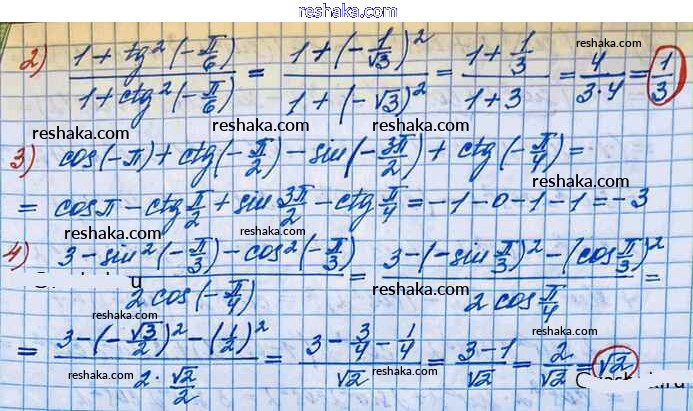 reshaka.com
2) (1 + tg²(-π/6))/(1 + ctg²(-π/6)) = (1 + (-1/√3)²)/(1 + (-√3)²) = (1 + 1/3)/(1 + 3) = 4/(3·4) = 1/3
reshaka.com
reshaka.com
reshaka.com
reshaka.com
3) cos(-π) + ctg(-π/2) - sin(-3π/2) + ctg(-π/4) =
reshaka.com
reshaka.com
= cos π - ctg π/2 + sin 3π/2 - ctg π/4 = -1 - 0 - 1 - 1 = -3
reshaka.com
reshaka.com
4) (3 - sin²(-π/3) - cos²(-π/3))/(2 cos(-π/4)) = (3 - (-sin π/3)² - (cos π/3)²)/(2 cos π/4) =
reshaka.com
reshaka.com
= (3 - (-√3/2)² - (1/2)²)/(2 · √2/2) = (3 - 3/4 - 1/4)/√2 = (3 - 1)/√2 = 2/√2 = √2
reshaka.com
reshaka.com
reshaka.com
reshaka.com